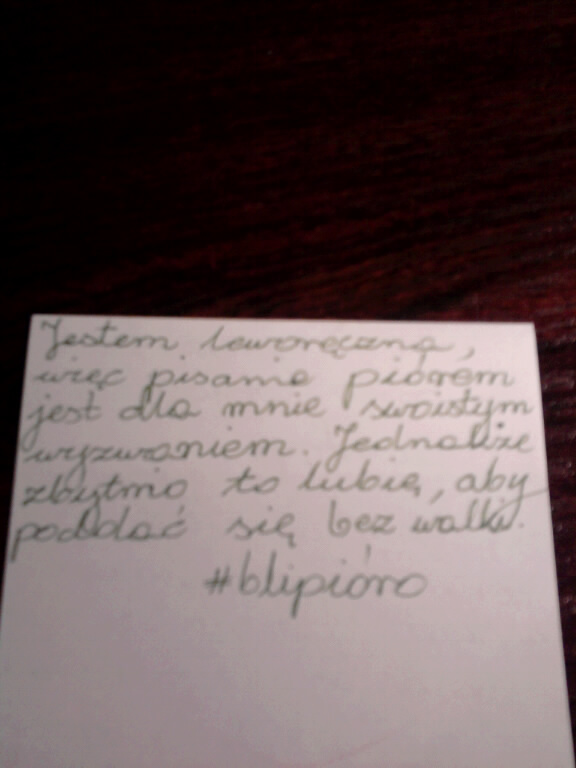 Jestem leworęczna,
więc pisanie piórem
jest dla mnie swoistym
wyzwaniem. Jednakże
zbytnio to lubię, aby
poddać się bez walki.
#blipióro